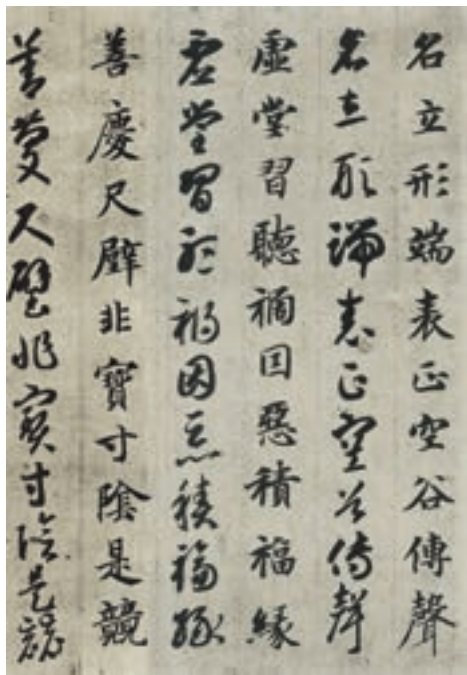 名立形端表正空谷傳聲
名立形端表正空谷傳聲
虛堂習聽禍因惡積福緣
虛堂習聽禍因惡積福緣
善慶尺璧非寶寸陰是競
善慶尺璧非寶寸陰是競